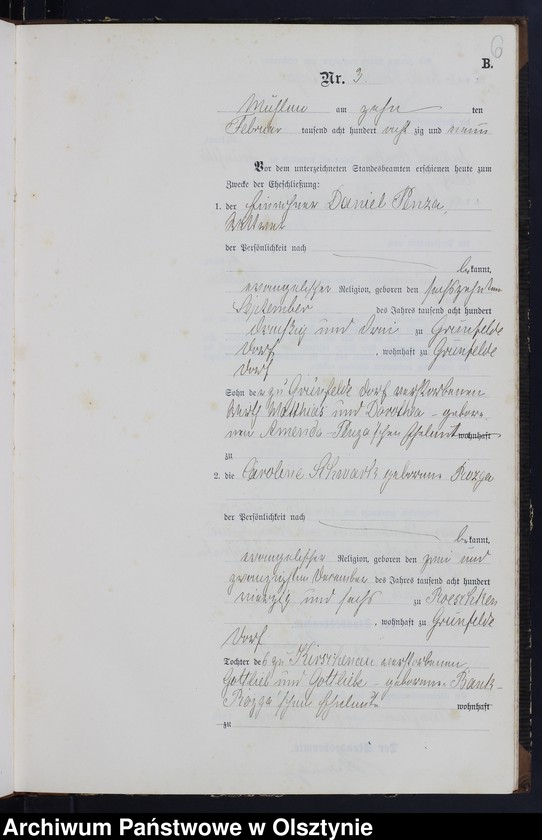 6
B.
Nr. 3
Mühlen am zehn ten
Februar tausend acht hundert acht zig und neun
Vor dem unterzeichneten Standesbeamten erschienen heute zum
Zwecke der Eheschließung:
1. der Einwohner Daniel Penza,
Wittwer
der Persönlichkeit nach
bekannt,
evangelischer Religion, geboren den sechszehnten
September des Jahres tausend acht hundert
dreißig und drei zu Grünfelde
Dorf, wohnhaft zu Grünfelde
Dorf
Sohn der zu Grünfelde Dorf verstorbenen
Matthias und Dorothea - gebore-
nen Amenda - Penza'schen Eheleute wohnhaft
zu
2. die Caroline geborene Rozga
der Persönlichkeit nach
bekannt,
evangelischer Religion, geboren den zwei und
zwanzigsten Dezember des Jahres tausend acht hundert
vierzig und sechs zu Roeschken
, wohnhaft zu Grünfelde
Dorf
Tochter der zu verstorbenen
Gottlieb und Gottliebe - geborene
Rozga'schen Eheleute wohnhaft
zu
Archiwum Państwowe w Olsztynie